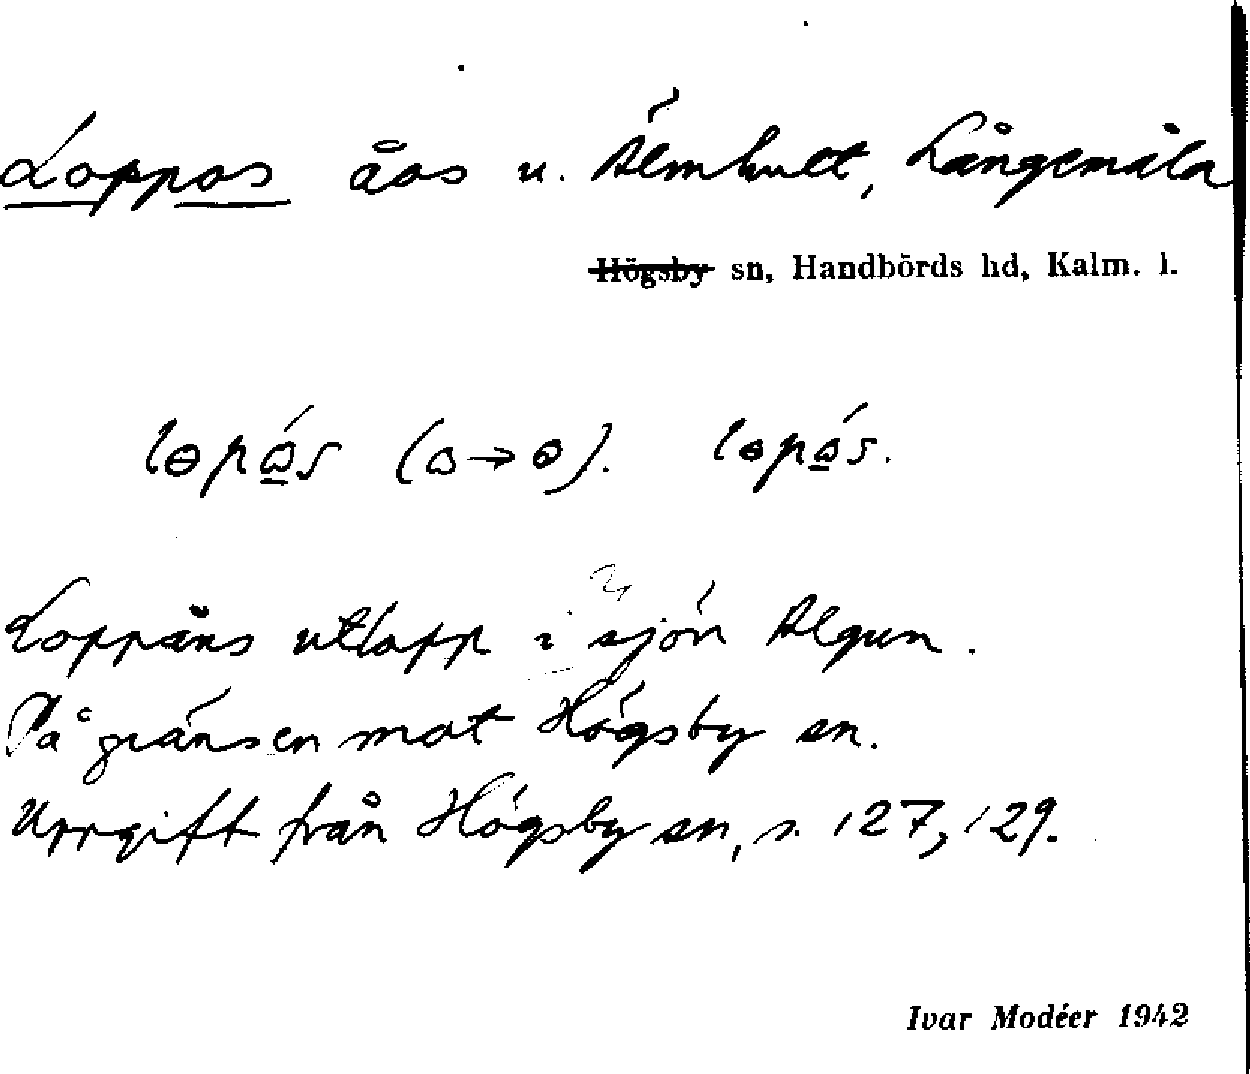 Loppos åos u. Älmhult, Långemåla
Högsby sn, Handbörds hd, Kalm. l.
Loppåns utlopp i sjön Algun.
På gränsen mot Högsby sn.
Uppgift från Högsby sn, s. 127, 129.
Ivar Modéer 1942